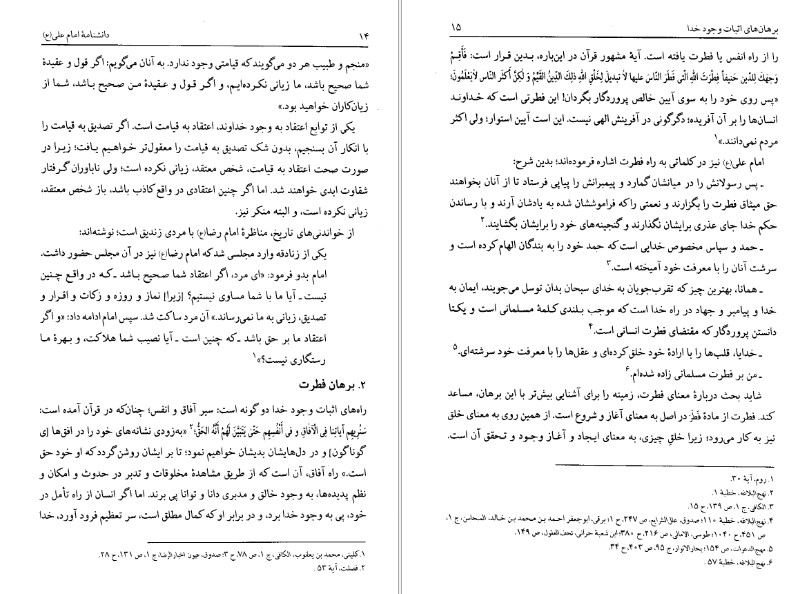 ۱۴ دانشنامهٔ امام علی(ع)
«منجم و طبیب هر دو می‌گویند که قیامتی وجود ندارد. به آنان می‌گویم: اگر قول و عقیدهٔ
شما صحیح باشد، ما زیانی نکرده‌ایم، و اگر قول و عقیدهٔ من صحیح باشد، شما از
زیان‌کاران خواهید بود.»
یکی از توابع اعتقاد به وجود خداوند، اعتقاد به قیامت است. اگر تصدیق به قیامت را
با انکار آن بسنجیم، بدون شک تصدیق به قیامت را معقول‌تر خواهیم یافت؛ زیرا در
صورت صحت اعتقاد به قیامت، شخص معتقد، زیانی نکرده است؛ ولی ناباوران گرفتار
شقاوت ابدی خواهند شد. اما اگر چنین اعتقادی در واقع کاذب باشد، باز شخص معتقد،
زیانی نکرده است، و البته منکر نیز.
از خواندنی‌های تاریخ، مناظرهٔ امام رضا(ع) با مردی زندیق است؛ نوشته‌اند:
یکی از زنادقه وارد مجلسی شد که امام رضا(ع) نیز در آن مجلس حضور داشت.
امام بدو فرمود: «ای مرد، اگر اعتقاد شما صحیح باشد ـ که در واقع چنین
نیست ـ آیا ما با شما مساوی نیستیم؟ [زیرا] نماز و روزه و زکات و اقرار و
تصدیق، زیانی به ما نمی‌رساند.» آن مرد ساکت شد. سپس امام ادامه داد: «و اگر
اعتقاد ما بر حق باشد ـ که چنین است ـ آیا نصیب شما هلاکت، و بهرهٔ ما
رستگاری نیست؟»۱
۲. برهان فطرت
راه‌های اثبات وجود خدا دو گونه است: سیر آفاق و انفس؛ چنان‌که در قرآن آمده است:
سَنُرِیهِم آیاتِنا فِی الآفاقِ وَ فی أَنْفُسِهِم حَتّی یَتَبَیَّنَ لَهُمْ أَنَّهُ الحَقُّ؛۲ «به‌زودی نشانه‌های خود را در افق‌ها [ی
گوناگون] و در دل‌هایشان بدیشان خواهیم نمود؛ تا بر ایشان روشن گردد که او خود حق
است.» راه آفاق، آن است که از طریق مشاهدهٔ مخلوقات و تدبر در حدوث و امکان و
نظم پدیده‌ها، به وجود خالق و مدبری دانا و توانا پی برند. اما اگر انسان از راه تأمل در
خود، پی به وجود خدا برد، و در برابر او که کمال مطلق است، سر تعظیم فرود آورد، خدا
۱. کلینی، محمد بن یعقوب، الکافی، ج ۱، ص ۷۸، ح ۳؛ صدوق، عیون اخبار الرضا، ج ۱، ص ۱۳۱، ح ۲۸.
۲. فصلت، آیهٔ ۵۳.
برهان‌های اثبات وجود خدا ۱۵
را از راه انفس یا فطرت یافته است. آیهٔ مشهور قرآن در این‌باره، بدین قرار است: فَأَقِمْ
وَجهَکَ لِلدّینِ حَنیفاً فِطْرَتَ اللهِ الَّتی فَطَرَ النّاسَ عَلَیها لاٰ تَبدیلَ لِخَلْقِ اللهِ ذلِکَ الدّینُ القَیِّمُ وَ لٰکِنَّ أَکثَرَ النّاسِ لاٰیَعْلَمُونَ؛
«پس روی خود را به سوی آیین خالص پروردگار بگردان! این فطرتی است که خداوند
انسان‌ها را بر آن آفریده؛ دگرگونی در آفرینش الهی نیست. این است آیین استوار؛ ولی اکثر
مردم نمی‌دانند.»۱
امام علی(ع) نیز در کلماتی به راه فطرت اشاره فرموده‌اند؛ بدین شرح:
ـ پس رسولانش را در میانشان گمارد و پیمبرانش را پیاپی فرستاد تا از آنان بخواهند
حق میثاق فطرت را بگزارند و نعمتی را که فراموششان شده به یادشان آرند و با رساندن
حکم خدا جای عذری برایشان نگذارند و گنجینه‌های خود را برایشان بگشایند.۲
ـ حمد و سپاس مخصوص خدایی است که حمد خود را به بندگان الهام کرده است و
سرشت آنان را با معرفت خود آمیخته است.۳
ـ همانا، بهترین چیز که تقرب‌جویان به خدای سبحان بدان توسل می‌جویند، ایمان به
خدا و پیامبر و جهاد در راه خدا است که موجب بلندی کلمهٔ مسلمانی است و یکتا
دانستن پروردگار که مقتضای فطرت انسانی است.۴
ـ خدایا، قلب‌ها را با ارادهٔ خود خلق کرده‌ای و عقل‌ها را با معرفت خود سرشته‌ای.۵
ـ من بر فطرت مسلمانی زاده شده‌ام.۶
شاید بحث دربارهٔ معنای فطرت، زمینه را برای آشنایی بیش‌تر با این برهان، مساعد
کند. فطرت از مادهٔ فَطَرَ در اصل به معنای آغاز و شروع است. از همین روی به معنای خلق
نیز به کار می‌رود؛ زیرا خلقِ چیزی، به معنای ایجاد و آغاز وجود و تحقق آن است.
۱. روم، آیهٔ ۳۰.
۲. نهج‌البلاغه، خطبهٔ ۱.
۳. الکافی، ج ۱، ص ۱۳۹، ح ۱۵.
۴. نهج‌البلاغه، خطبهٔ ۱۱۰؛ صدوق، علل الشرایع، ص ۲۴۷، ح ۱؛ برقی، ابوجعفر احمد بن محمد بن خالد، المحاسن، ج ۱،
ص ۴۵۱، ح ۱۰۴۰؛ طوسی، الامالی، ص ۲۱۶، ح ۳۸۰؛ ابن شعبهٔ حرانی، تحف‌العقول، ص ۱۴۹.
۵. مهج‌الدعوات، ص ۱۵۴؛ بحارالانوار، ج ۹۵، ص ۴۰۳، ح ۳۴.
۶. نهج‌البلاغه، خطبهٔ ۵۷.